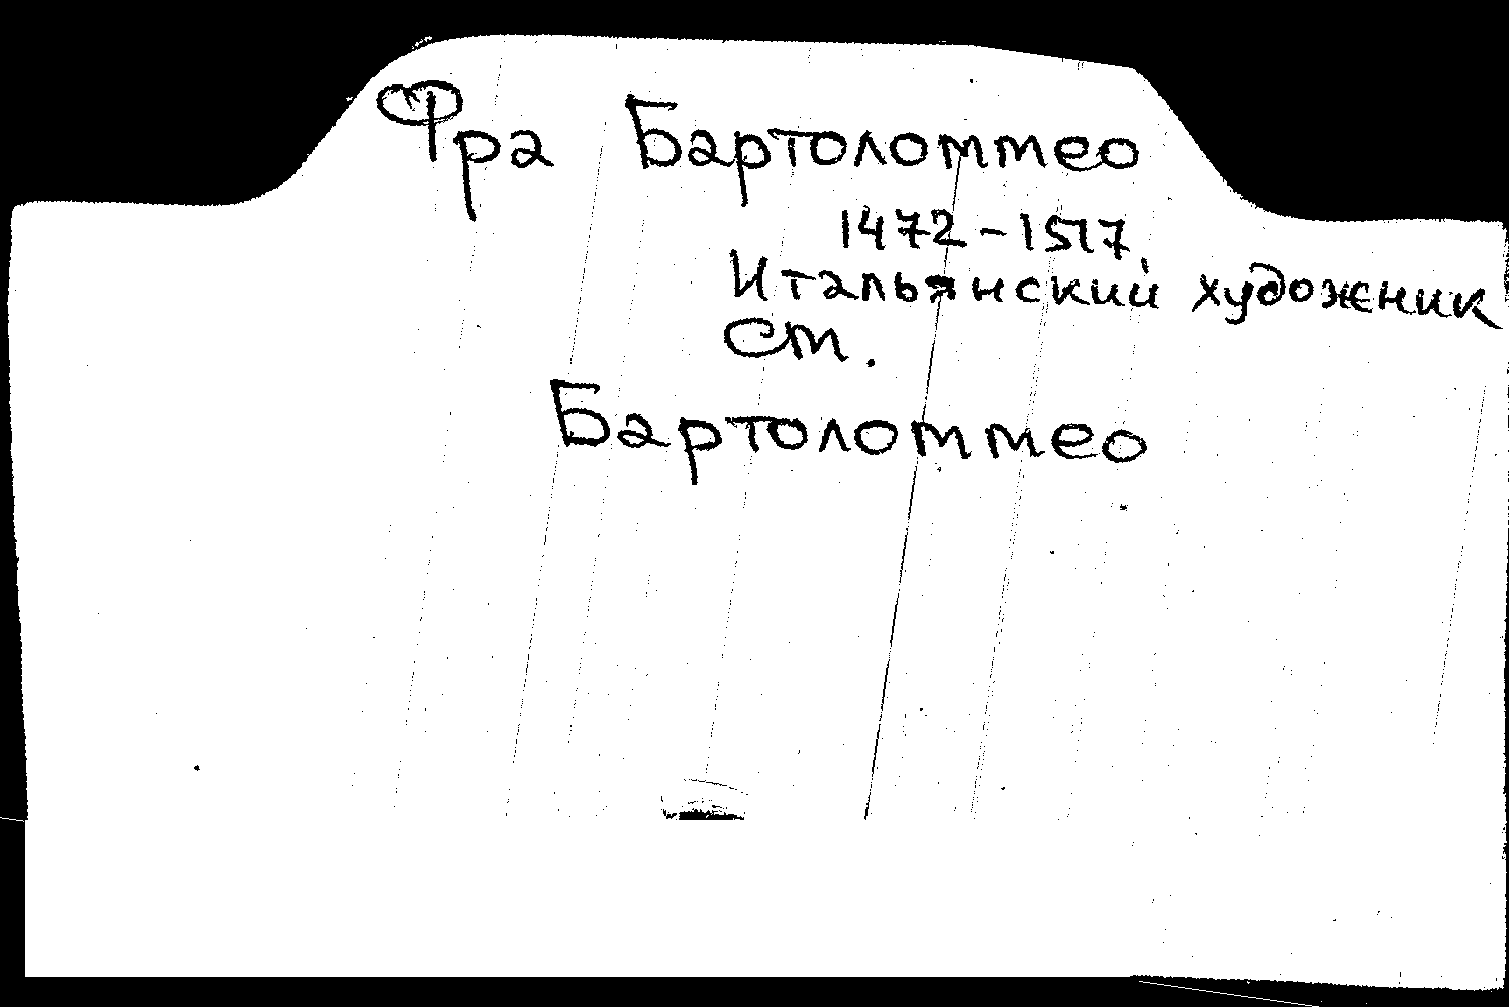 Фра Бартоломмео
1472-1517.
Итальянский художник
Ст.
Бартоломмео